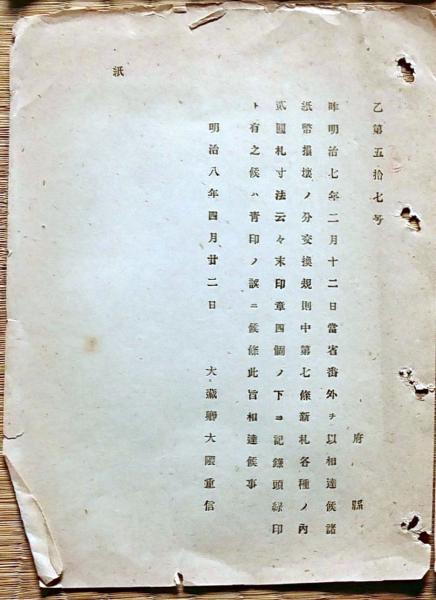 乙第五拾七号
府縣
昨明治七年二月十二日當省番外ヲ以相達候諸
紙幣損壊ノ分交換規則中第七條新札各種ノ內
貳圓札寸法云々末印章四個ノ下ヨ記錄頭緑印
ト有之候ハ青印ノ誤ニ候條此旨相達候事
明治八年四月廿二日
大藏卿大隈重信
紙